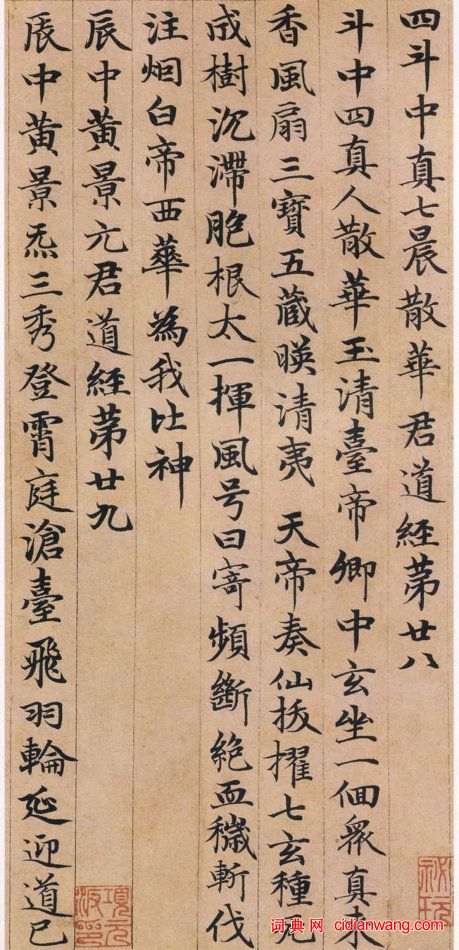 四斗中真七晨散華君道經第廿八
斗中四真人散華玉清臺帝卿中玄坐一個眾真來
香風扇三寶五藏暎清夷 天帝奏仙挍擢七玄種
成樹沉滯胞根太一揮風号曰寄頻斷絶血穢斬伐
注烟白帝西華為我比神
辰中黃景元君道經第廿九
辰中黃景炁三秀登霄庭滄臺飛羽輪延迎道已
词典网 cidianwang.com